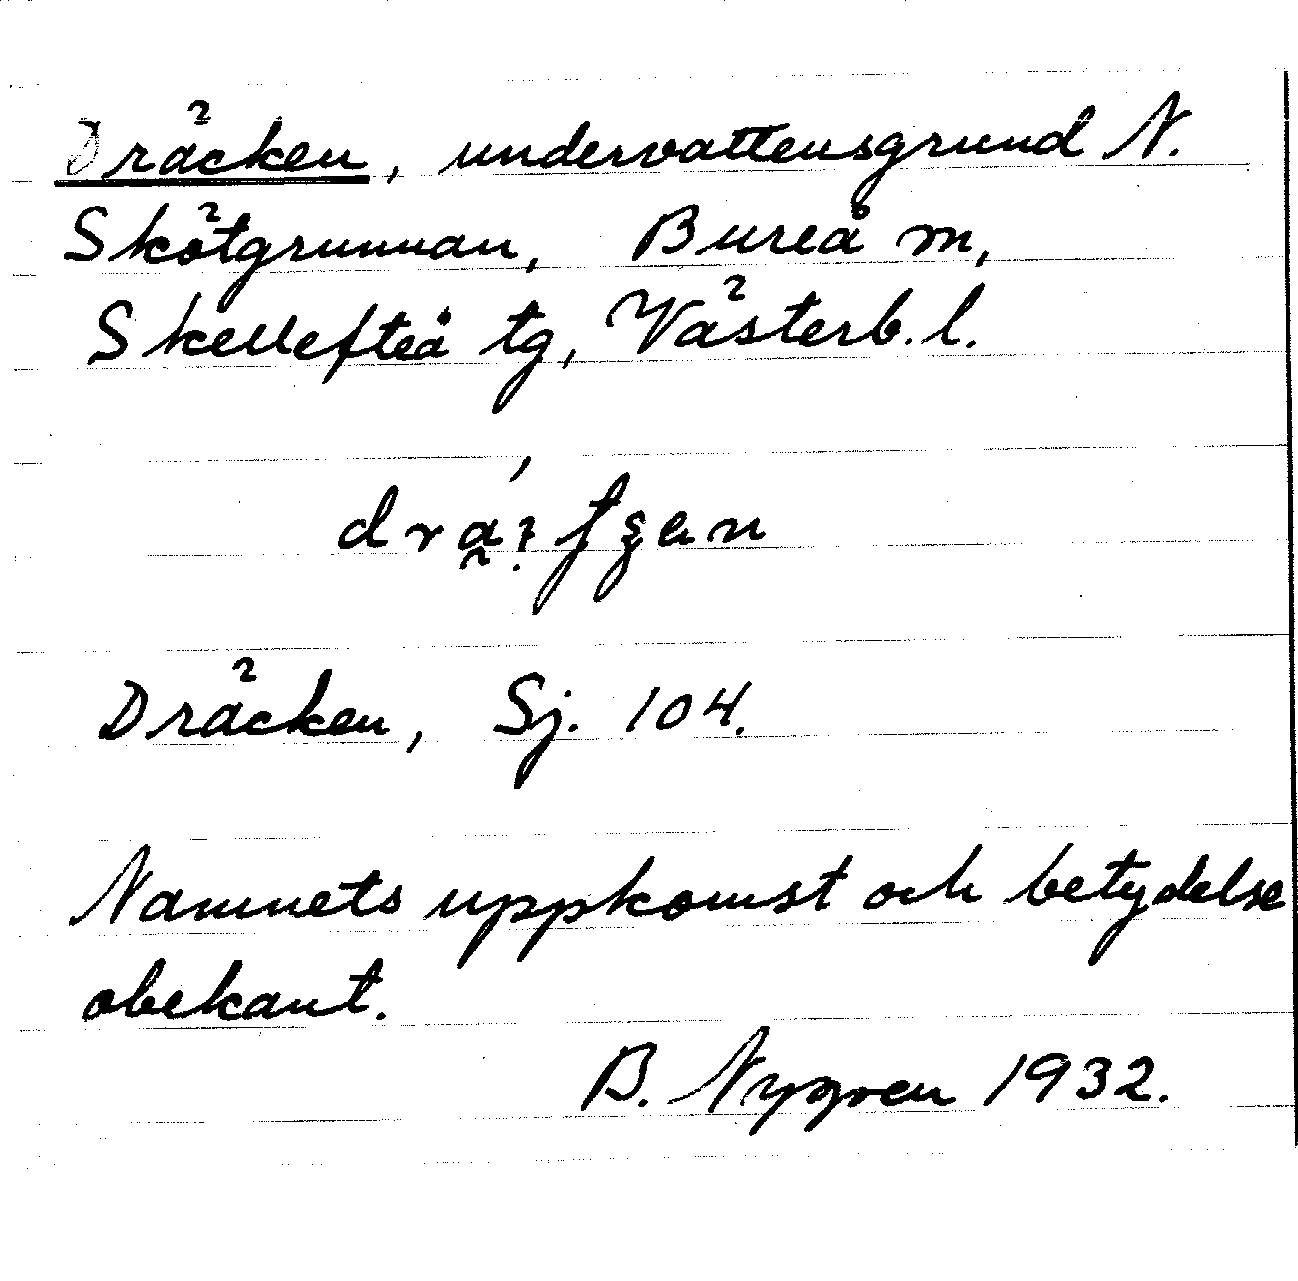 Dräcken, undervattensgrund N.
Skötgrunnan, Bureå m,
Skellefteå tg, Västerb. l.
Dräcken, Sj. 104.
Namnets uppkomst och betydelse
obekant.
B. Nygren 1932.